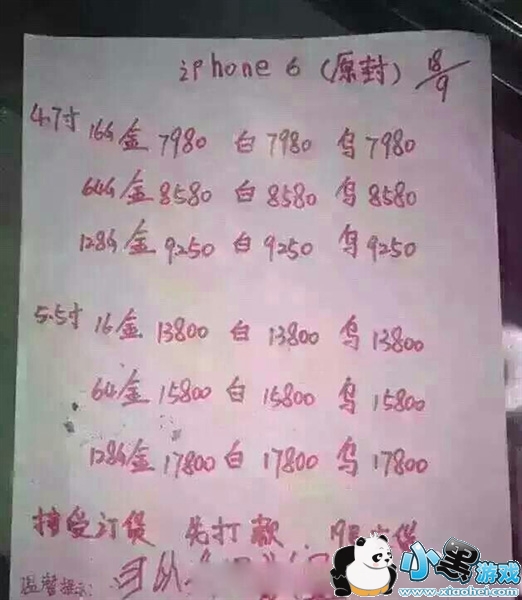 iPhone 6 (原封) 18/9
4.7寸 16G 金 7980 白 7980 乌 7980
64G 金 8580 白 8580 乌 8580
128G 金 9250 白 9250 乌 9250
5.5寸 16 金 13800 白 13800 乌 13800
64 金 15800 白 15800 乌 15800
128G 金 17800 白 17800 乌 17800
接受订货 先打款
温馨提示: 可以
小黑游戏
www.xiaohei.com